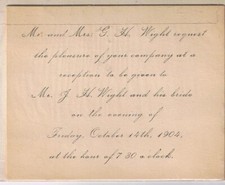 Mr. and Mrs. G. H. Wight request
the pleasure of your company at a
reception to be given to
Mr. J. H. Wight and his bride
on the evening of
Friday, October 14th, 1904,
at the hour of 7.30 o'clock.